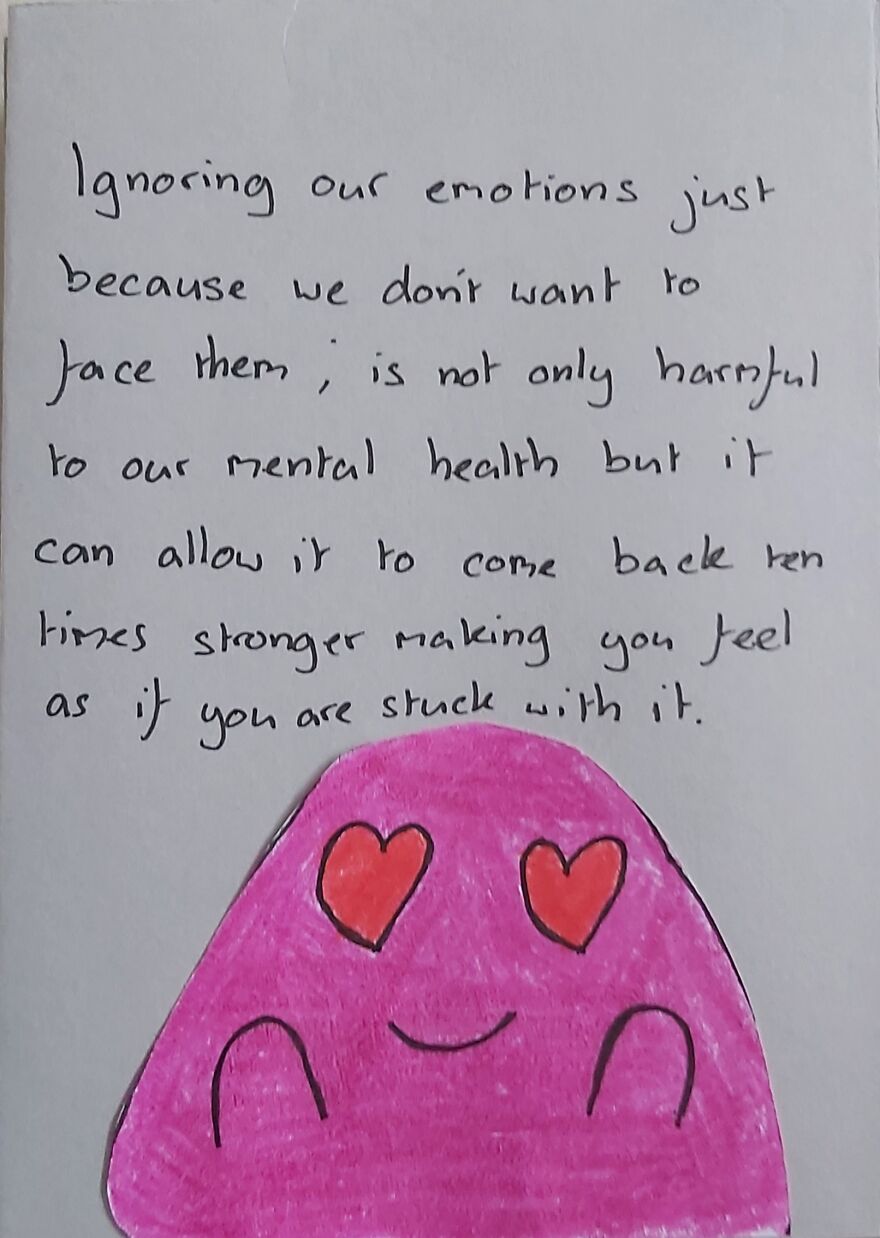 Ignoring our emotions just
because we don't want to
face them ; is not only harmful
to our mental health but it
can allow it to come back ten
times stronger making you feel
as if you are stuck with it.